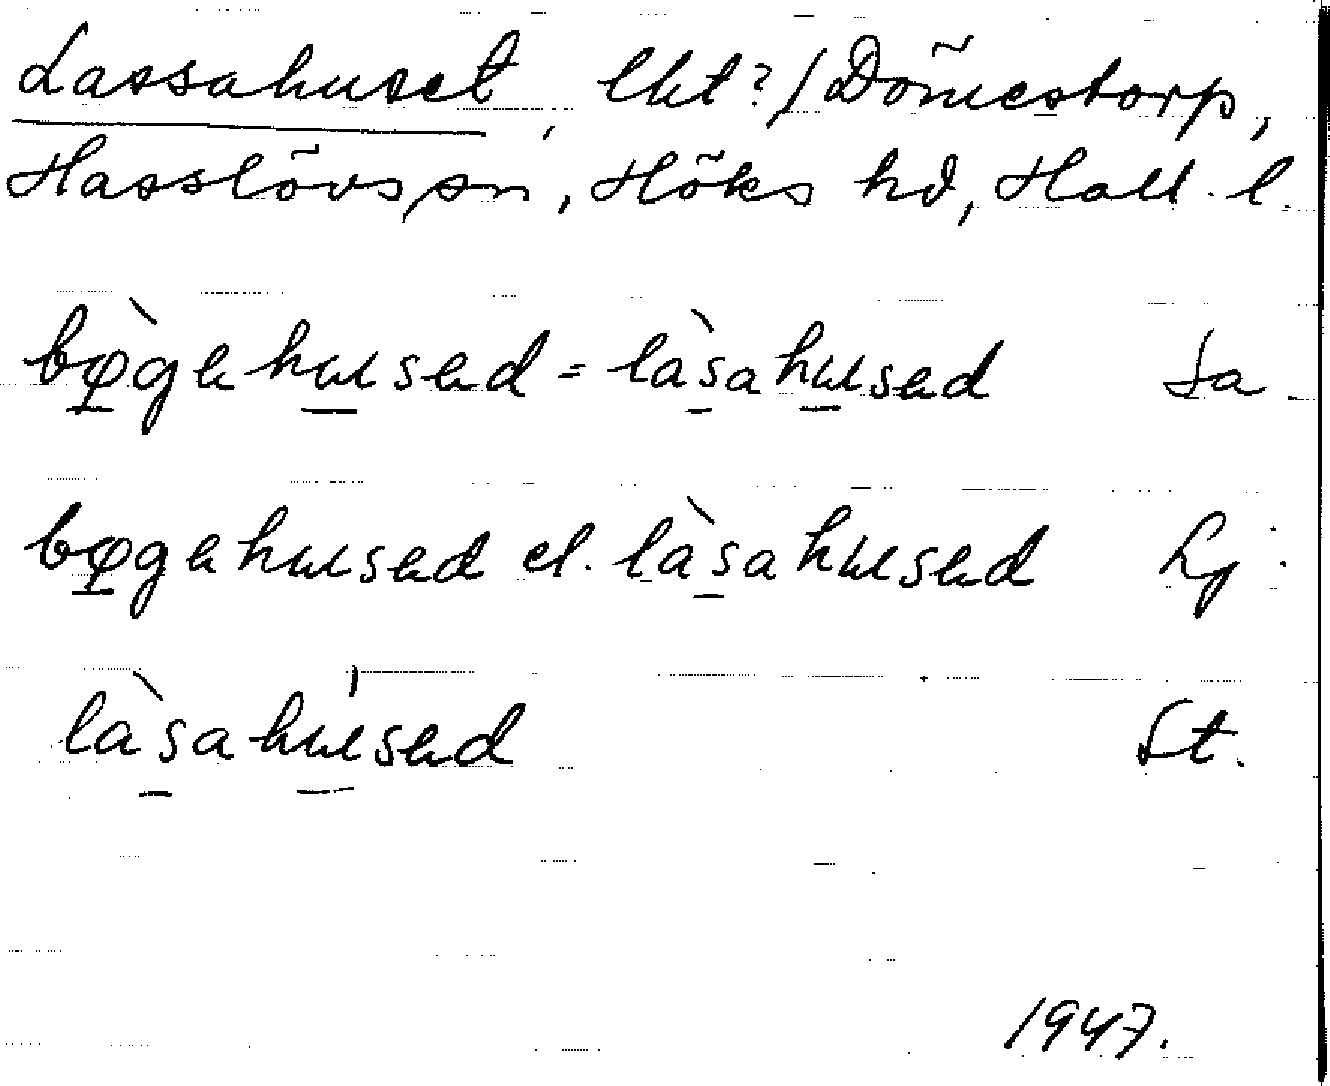 Lassahuset, lht?/Dömestorp,
Hasslövs sn, Höks hd, Hall. l.
bø̀gehused = làsahused Ja
bøgehused el. làsahused Lj.
làsahused St.
1947.